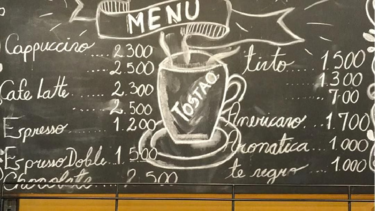 MENU
Cappuccino 2.300
2.500
Cafe Latte 2.300
2.500
Espresso 1.200
Espresso Doble 1.500
Chocolate 2.500
TOSTAO
tinto 1500
1.300
700
Americano 1.700
Aromatica 1.000
te negro 1.000